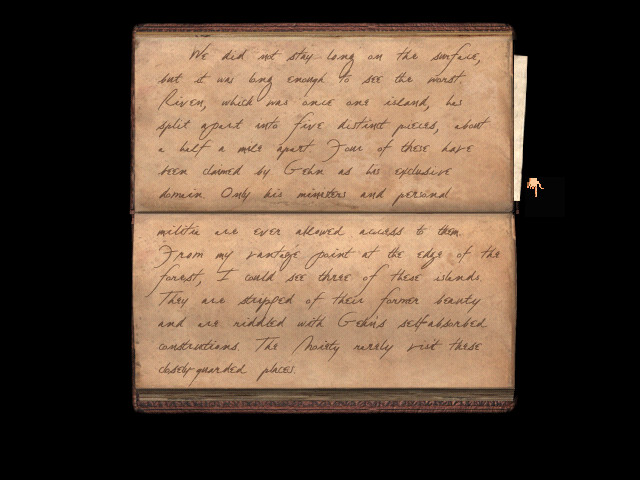 We did not stay long on the surface,
but it was long enough to see the worst.
Riven, which was once one island, has
split apart into five distinct pieces, about
a half a mile apart. Four of these have
been claimed by Gehn as his exclusive
domain. Only his ministers and personal
militia are ever allowed access to them.
From my vantage point at the edge of the
forest, I could see three of these islands.
They are stripped of their former beauty
and are riddled with Gehn's self-absorbed
constructions. The Moiety rarely visit these
closely-guarded places.